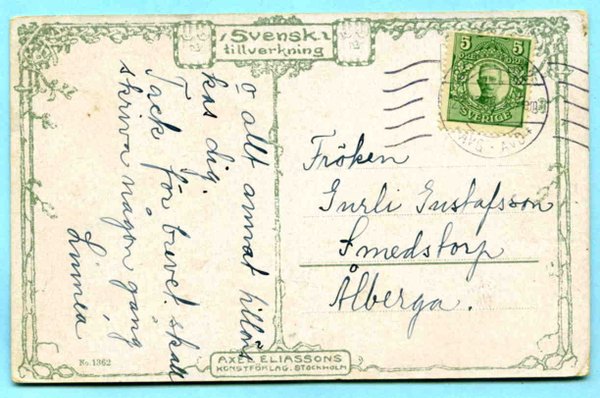 Svensk
tillverkning
o allt annat tillönskas dig.
Tack för brevet. skall
skriva någon gång
Linnea
5 5
SVERIGE
AVG - AVD
Fröken
Gurli Gustafsson
Smedstorp
Ålberga.
No. 1362
AXEL ELIASSONS
KONSTFÖRLAG. STOCKHOLM